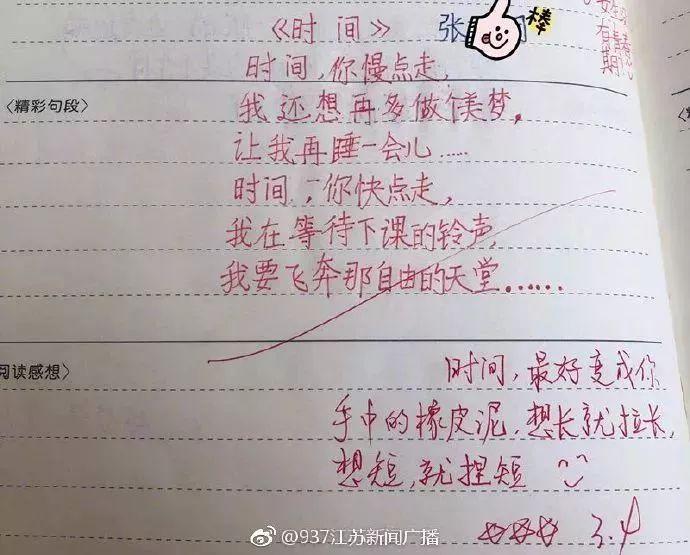 《时间》 张 棒
时间,你慢点走,
〈精彩句段〉
我还想再多做个美梦,
让我再睡一会儿……
时间,你快点走,
我在等待下课的铃声,
我要飞奔那自由的天堂……
阅读感想〉
时间,最好变成你
手中的橡皮泥,想长就拉长,
想短,就捏短
3.4
@937江苏新闻广播